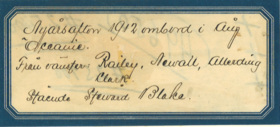 Nyårsafton 1912 ombord i Ång
Oceanic.
Från vänster: Railey, Newall, Allerding
Clark
Stående Steward Blake.